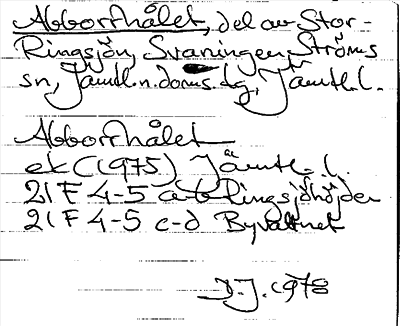 Abborrhålet, del av Stor-
Ringsjön, Svaningen Ströms
sn, Jämtl. n. doms. tg, Jämtl. l.
Abborrhålet
ek C (1975) Jämtl. l.
21 F 4-5 a-b Ringsjöhöjden
21 F 4-5 c-d Byvattnet
D.J. 1978